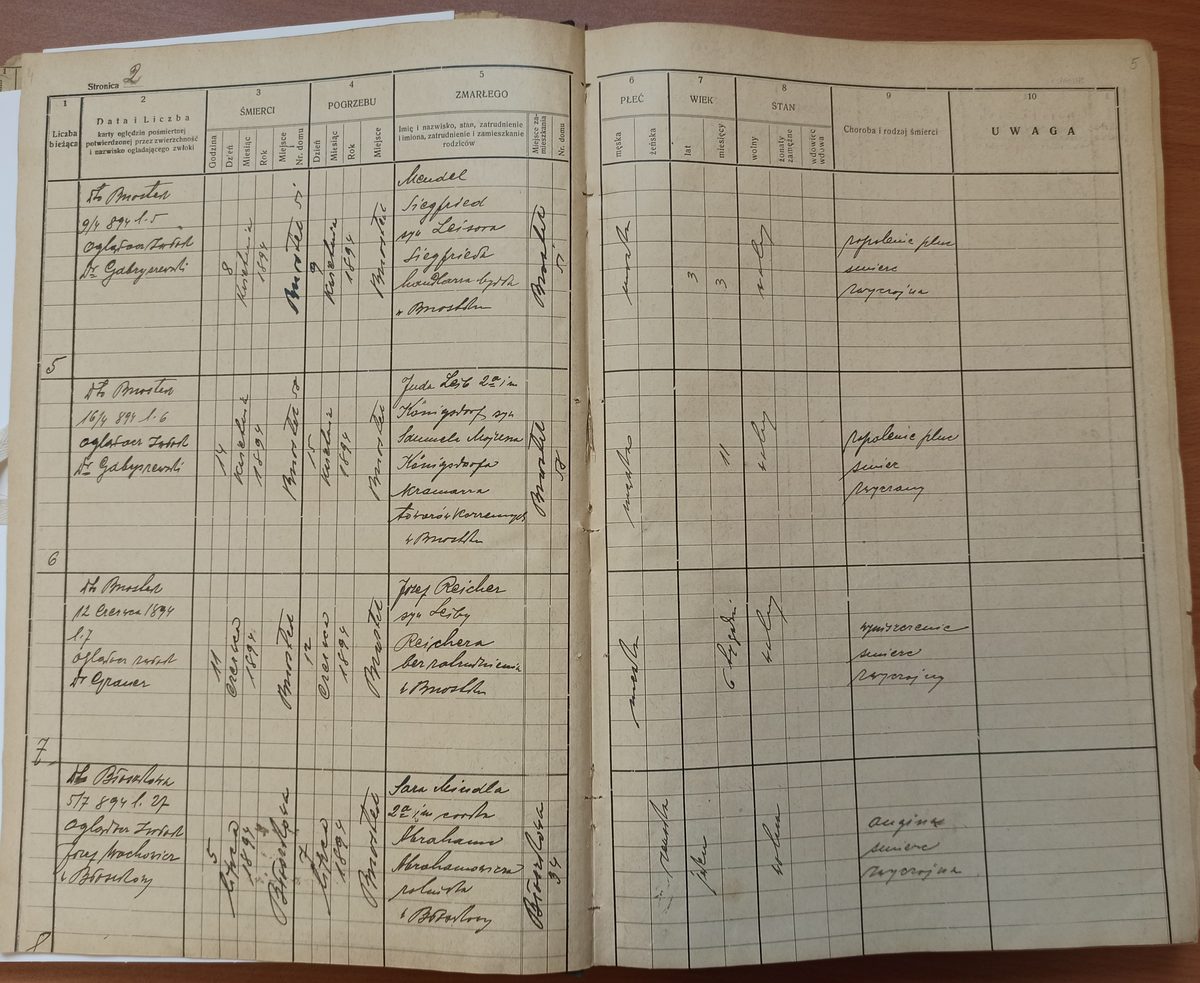 Stronica 2
5
1
2
3
4
5
6
7
8
9
10
Liczba bieżąca
Data i Liczba
karty oględzin pośmiertnej
potwierdzonej przez zwierzchność
i nazwisko oglądającego zwłoki
ŚMIERCI
Godzina
Dzień
Miesiąc
Rok
Miejsce
Nr. domu
POGRZEBU
Dzień
Miesiąc
Rok
Miejsce
ZMARŁEGO
Imię i nazwisko, stan, zatrudnienie
i imiona, zatrudnienie i zamieszkanie
rodziców
Miejsce zamieszkania
Nr. domu
PŁEĆ
męska
żeńska
WIEK
lat
miesięcy
STAN
wolny
żonaty
zamężne
wdowiec
wdowa
Choroba i rodzaj śmierci
UWAGA
5
Dto Brostek
9/4 894 l. 5
Oglądacz zwłok
Dr Gabryszewski
8
Kwietnia
1894
51
9
Kwietnia
1894
Mendel
Siegfried
syn Leisora
Siegfrieda
handlarza bydła
51
męska
3
3
wolny
zapalenie płuc
śmierć
zwyczajna
6
16/4 894 l. 6
Oglądacz zwłok
Dr Gabryszewski
14
Kwietnia
1894
58
15
Kwietnia
1894
Juda Leib 2a im
Königsdorf syn
Samuela Mojżesza
Königsdorfa
kramarza
towarów korzennych
58
męska
11
wolny
zapalenie płuc
śmierć
7
12 czerwca 1894
l. 7
oglądacz zwłok
Dr Grauer
11
czerwca
1894
12
czerwca
1894
Józef Reicher
syn Leiby
Reichera
bez zatrudnienia
męska
6 tygodni
wolny
wyniszczenie
śmierć
8
5/7 894 l. 27
Oglądacz zwłok
Józef
5
lipca
1894
7
lipca
1894
Sara Mindla
2a im córka
Abrahama
Abrahamowicza
rolnika
34
żeńska
wolna
angina
śmierć
zwyczajna